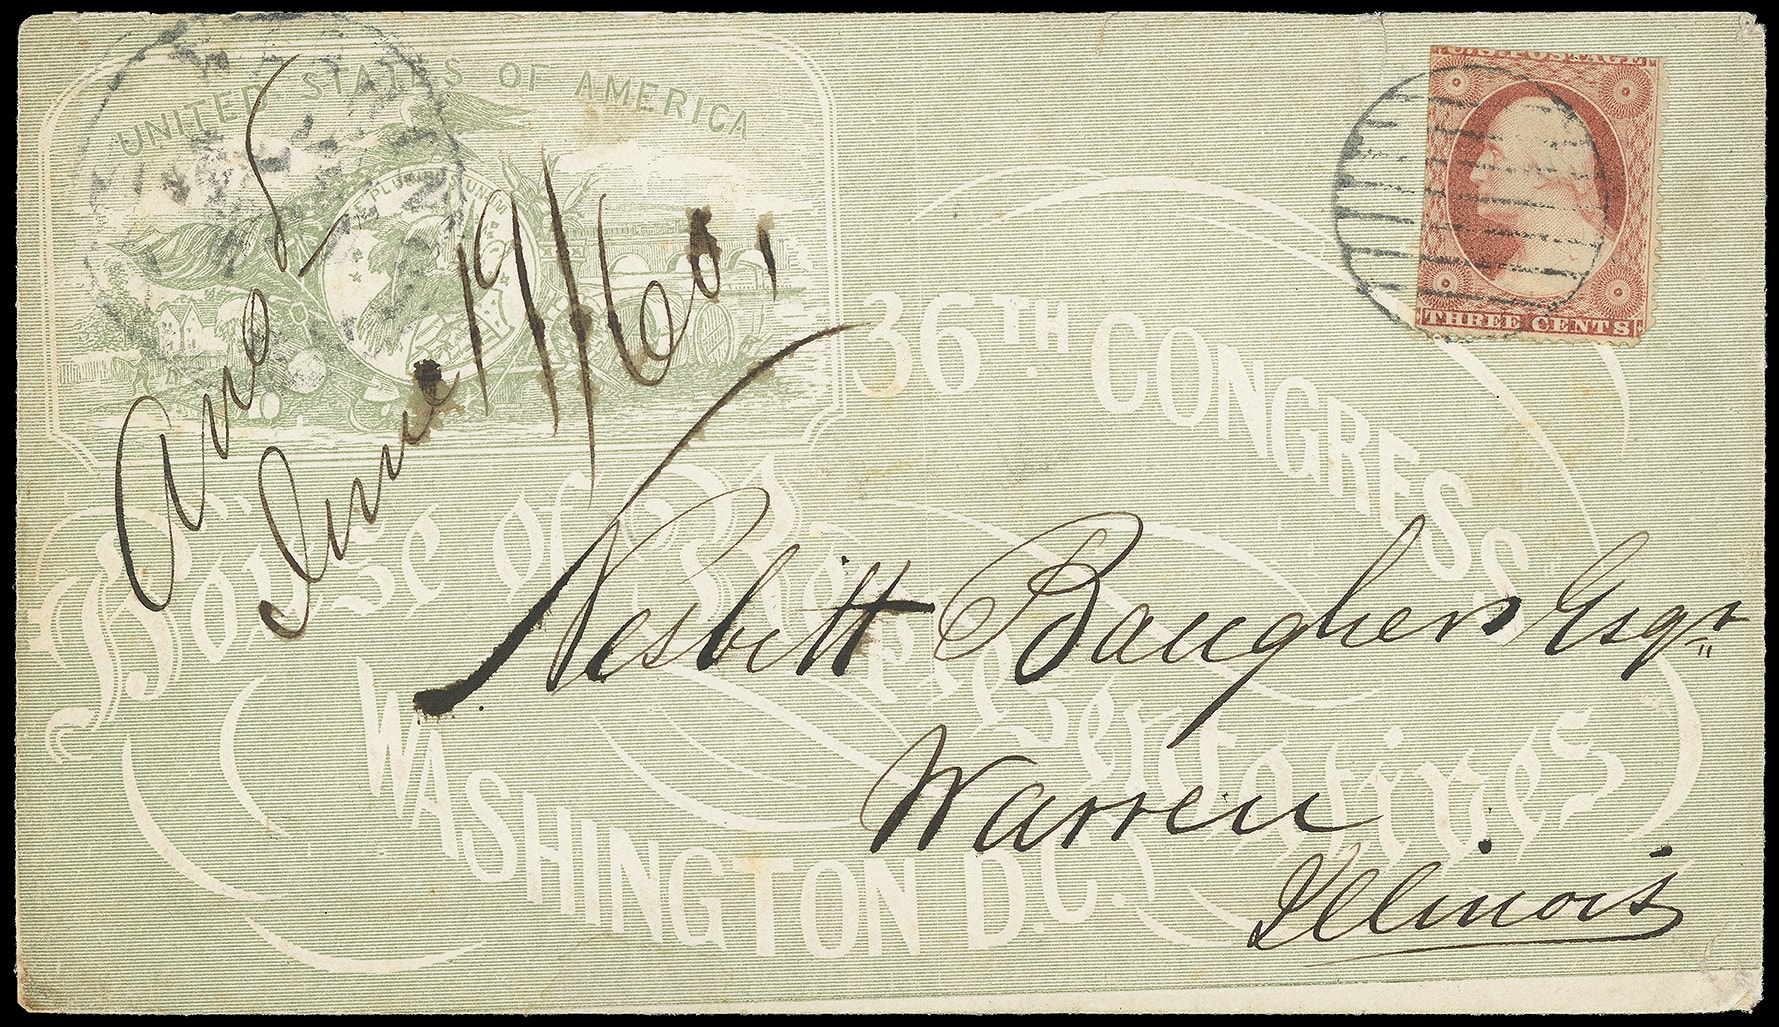 UNITED STATES OF AMERICA
E PLURIBUS UNUM
U.S. POSTAGE
THREE CENTS
36TH CONGRESS
House of Representatives
WASHINGTON D.C.
June 19/60,
Nesbitt Baughers Esqr
Warren
Illinois